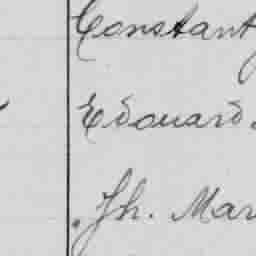 Constant
Edouard
Jh. Mar